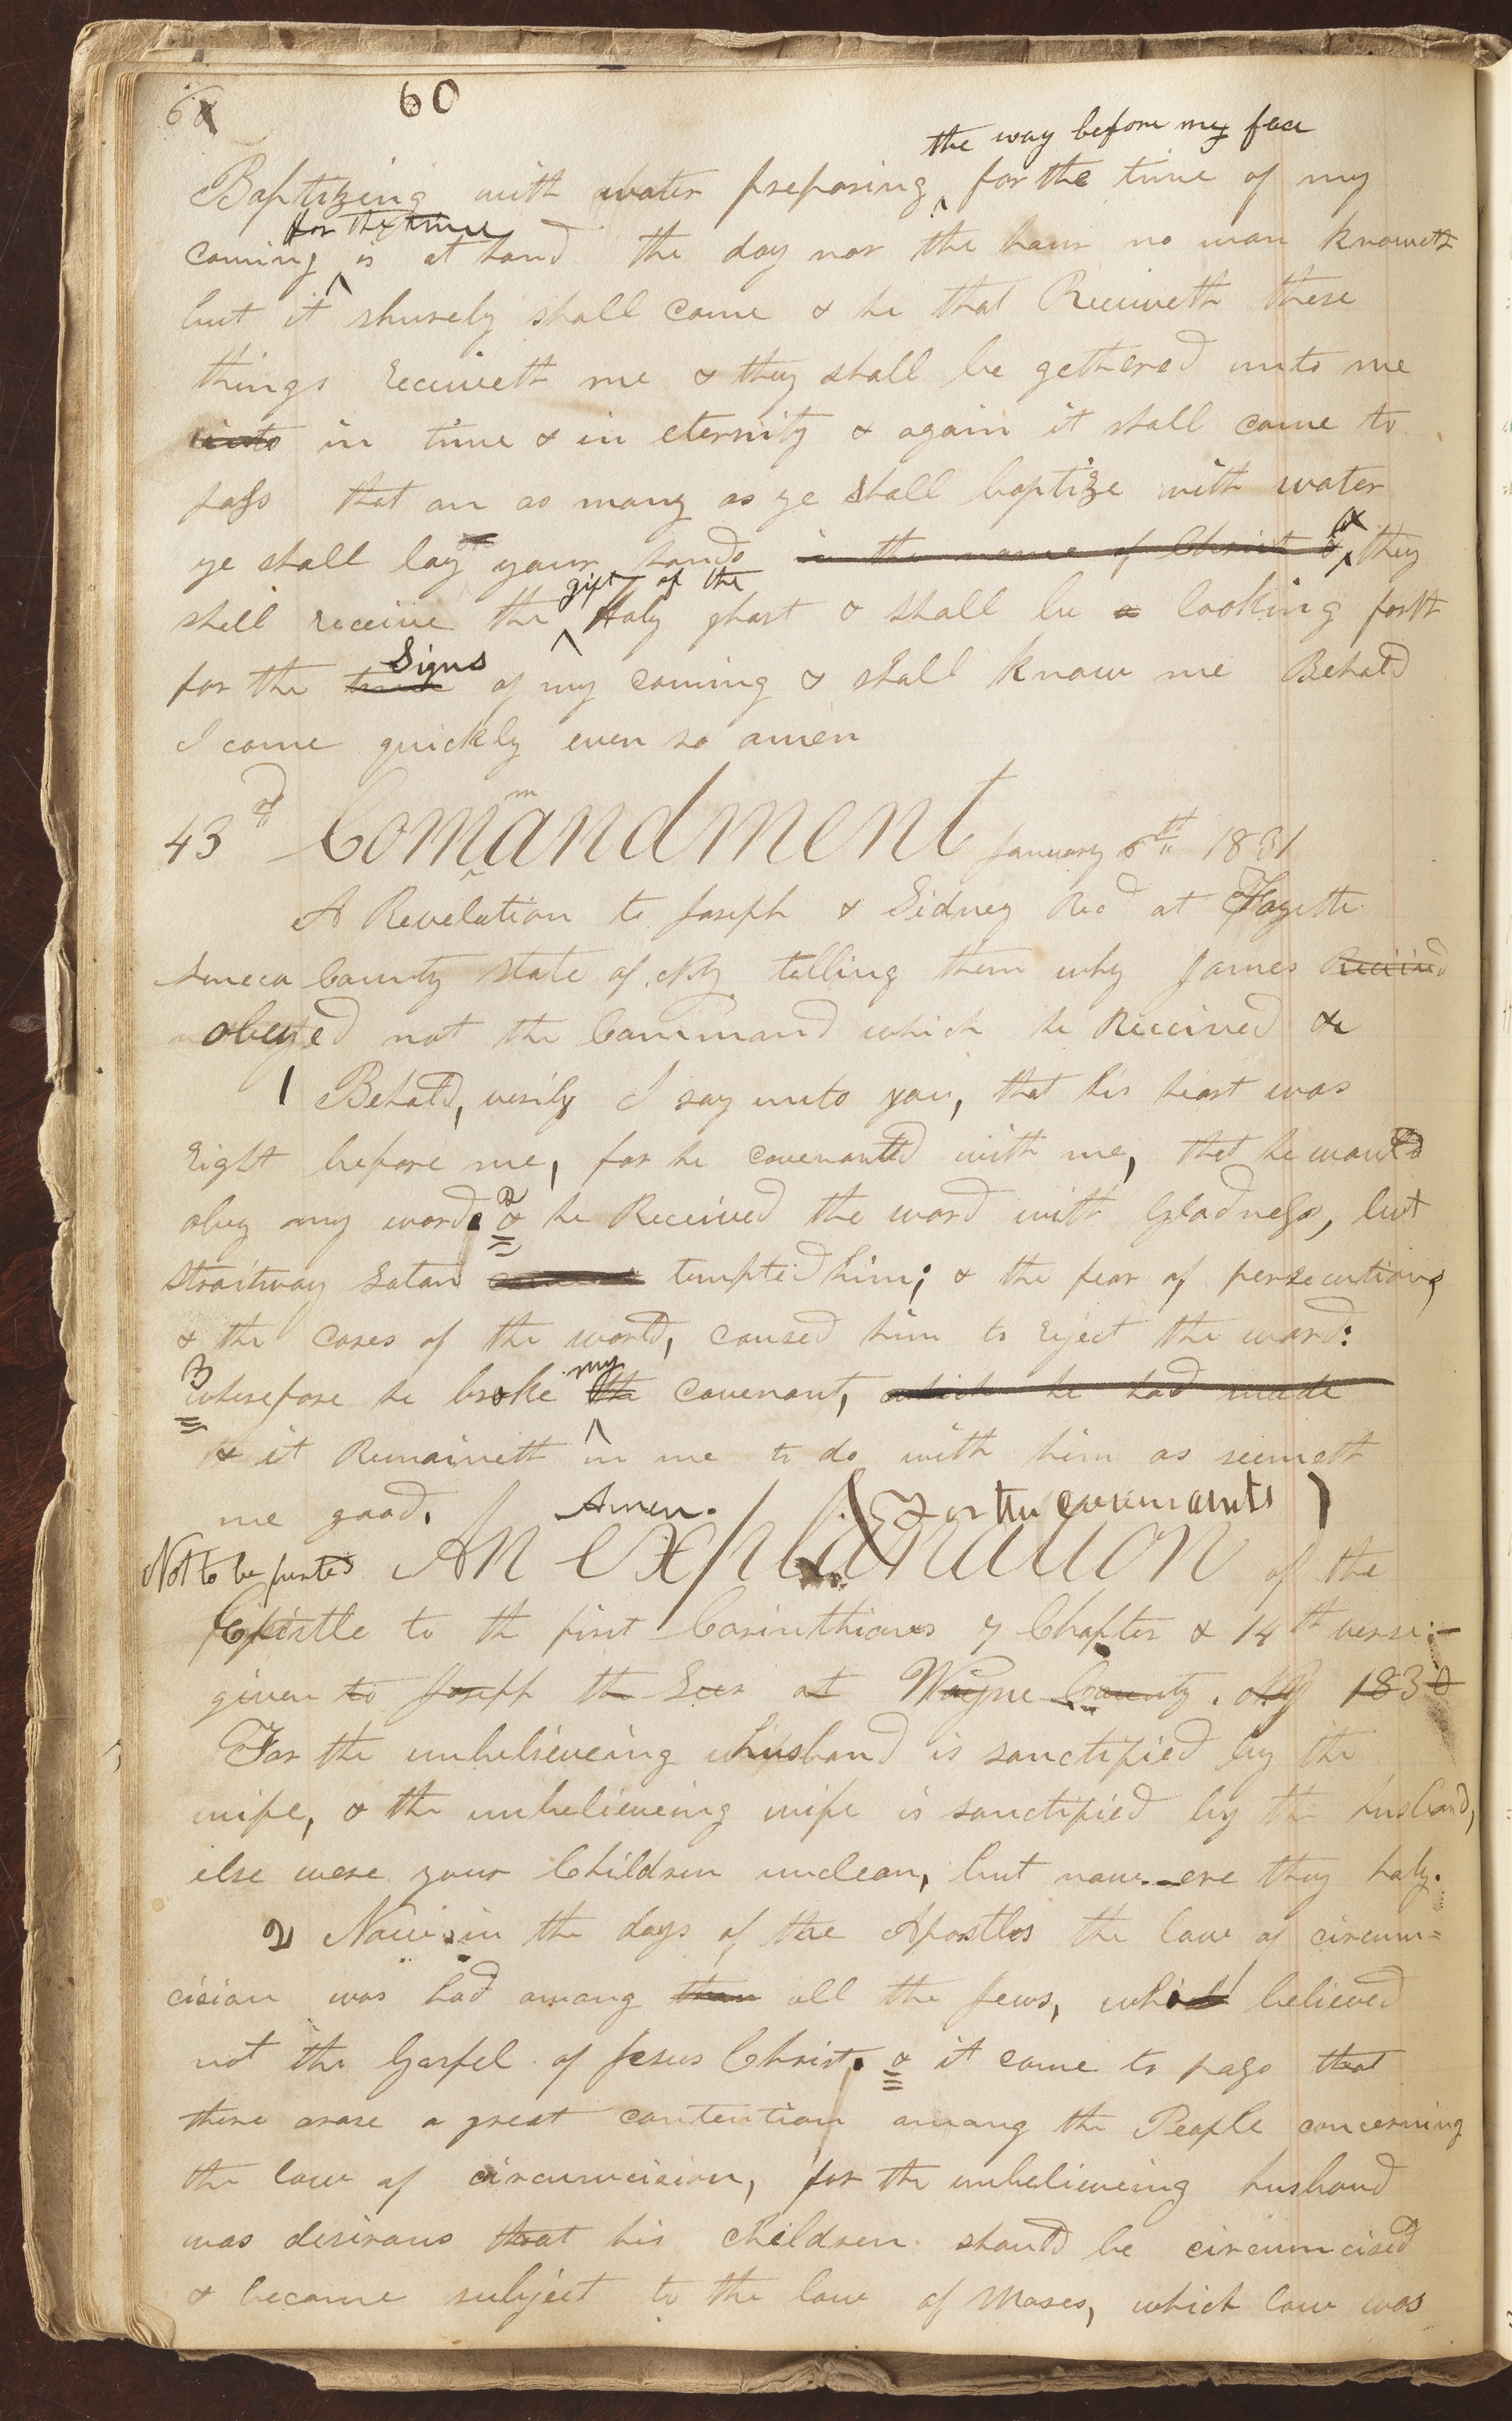 60
the way before my face
Baptizing with water preparing for the time of my
for the time
coming is at hand the day nor the hour no man knoweth
but it shurely shall come & he that Receiveth these
things receiveth me & they shall be gethered unto me
unto in time & in eternity & again it shall come to
pass that on as many as ye shall baptize with water
ye shall lay your hands in the name of Christ & & they
gift of the
shall receive the Holy ghost & shall be a looking forth
Signs
for the time of my coming & shall know me Behold
I come quickly even so amen
43rd Commandment January 6th 1831
A Revelation to Joseph & Sidney Recd at Fayette
Seneca County state of NY telling them why James Received
obeyed not the Command which he Received &c
1 Behold, verily I say unto you, that his heart was
right before me, for he covenanted with me, that he would
obey my word. 2 & he Received the word with Gladness, but
straitway Satan tempted him; & the fear of persecution,
& the cares of the world, caused him to reject the word:
my
3 wherefore he broke the covenant, which he had made
& it Remaineth in me to do with him as seemeth
me good. Amen. (For the covenants)
Not to be printed An explanation of the
Epistle to th first Corinthians 7 Chapter & 14th verse:—
given to Joseph the Seer at Wayne County. NY 1830
For the unbelieveing husband is sanctified by the
wife, & the unbelieveing wife is sanctified by the husband,
else were your Children unclean, but now are they holy.
2 Now in the days of the Apostles the law of circum=
cision was had among than all the Jews, which believed
not the Gospel of Jesus Christ. & it came to pass that
there arose a great contention among the People concerning
the law of circumcision, for the unbelieveing husband
was desirous that his children should be circumcised
& become subject to the law of Moses, which law was